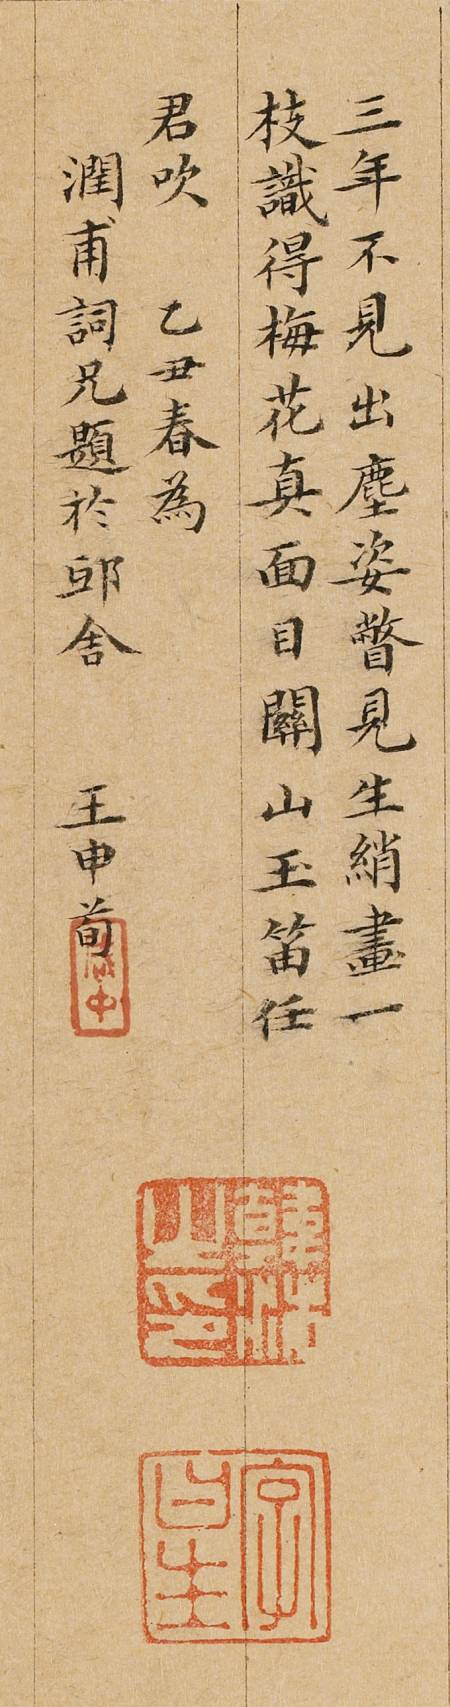 三年不見出塵姿瞥見生綃畫一
枝識得梅花真面目關山玉笛任
君吹 乙丑春為
潤甫詞兄題於邸舍 王申荀